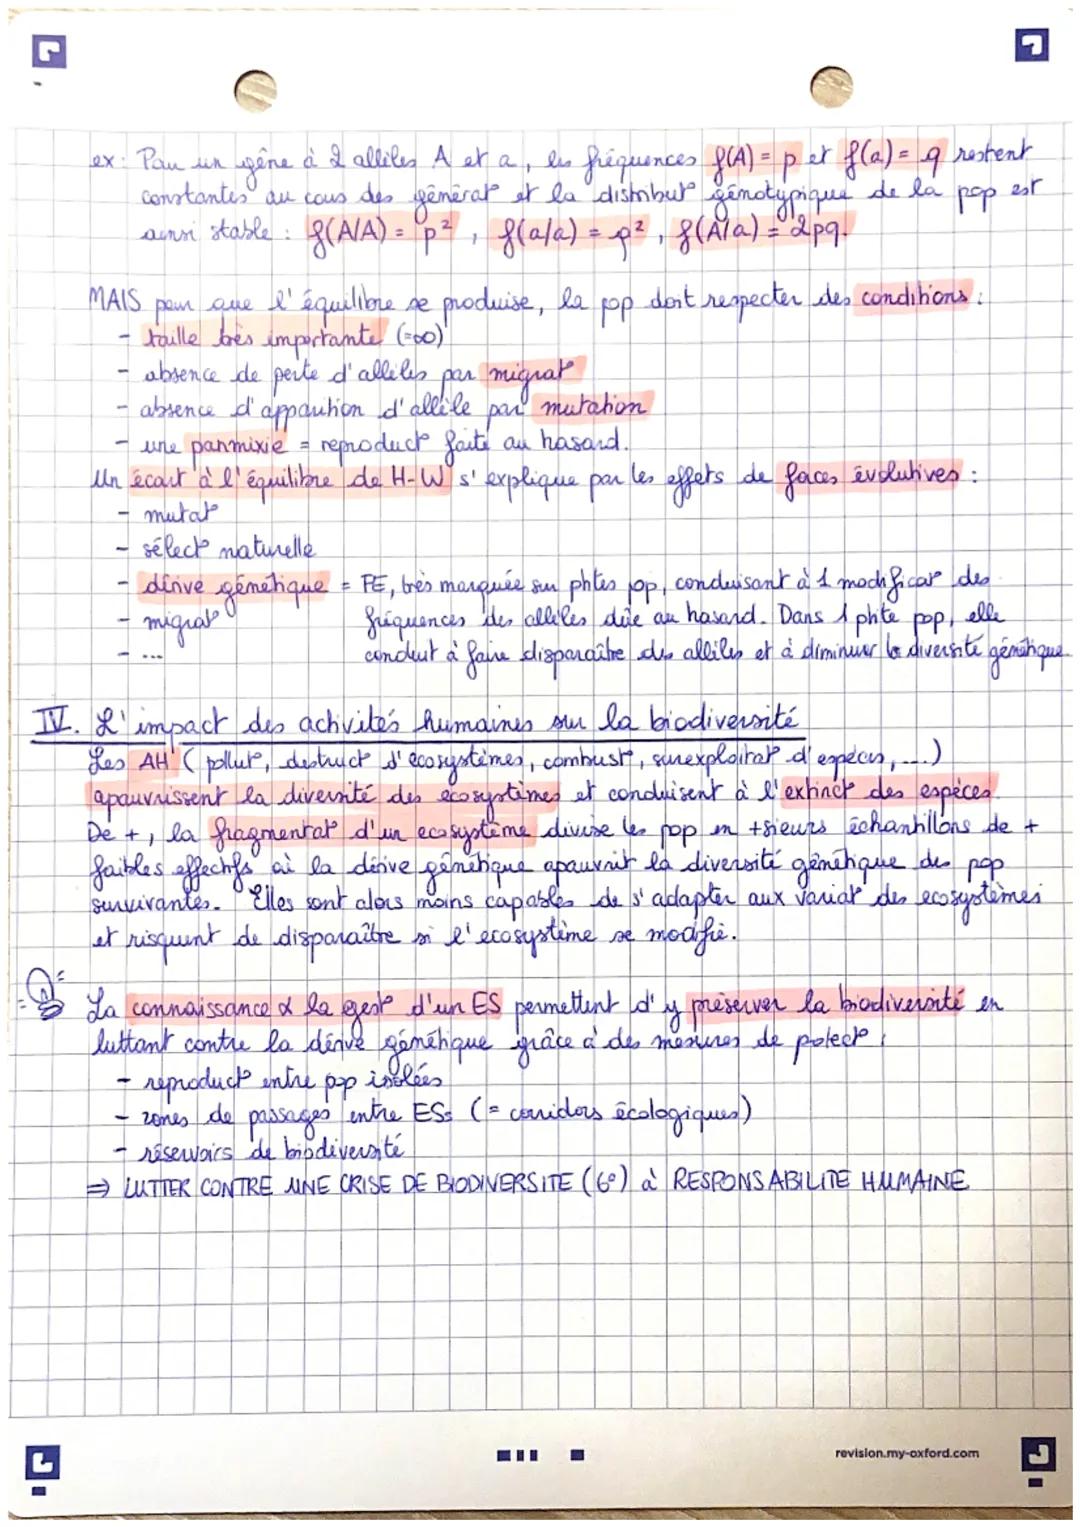 ex: Pour un gène à 2 allèles A et a, les fréquences f(A) = p et f(a) = q restent
constantes au cours des générat° et la distribut° génotypique de la pop est
ainsi stable : f(A/A) = p², f(a/a) = q², f(A/a) = 2pq.
MAIS pour que l'équilibre se produise, la pop doit respecter des conditions :
- taille très importante (=∞)
- absence de perte d'allèles par migrat°
- absence d'apparition d'allèle par mutation
- une panmixie = reproduct° faite au hasard.
Un écart à l'équilibre de H-W s'explique par les effets de forces évolutives :
- mutat°
- sélect° naturelle
- dérive génétique = FE, très marquée sur ptites pop, conduisant à 1 modificat° des
- migrat° fréquences des allèles dûe au hasard. Dans 1 ptite pop, elle
- ... conduit à faire disparaître des allèles et à diminuer la diversité génétique.
IV. L'impact des activités humaines sur la biodiversité
Les AH (pollut°, destruct° d'écosystèmes, combust°, surexploitat° d'espèces, ...)
apauvrissent la diversité des écosystèmes et conduisent à l'extinct° des espèces.
De +, la fragmentat° d'un ecosystème divise les pop en +sieurs échantillons de +
faibles effectifs où la dérive génétique apauvrit la diversité génétique des pop
survivantes. Elles sont alors moins capables de s'adapter aux variat° des ecosystèmes
et risquent de disparaître si l'ecosystème se modifie.
La connaissance & la gest° d'un ES permettent d'y préserver la biodiversité en
luttant contre la dérive génétique grâce à des mesures de protect° :
- reproduct° entre pop isolées
- zones de passages entre ESs (= corridors écologiques)
- réservoirs de biodiversité
⇒ LUTTER CONTRE UNE CRISE DE BIODIVERSITE (6e) à RESPONSABILITE HUMAINE
revision.my-oxford.com